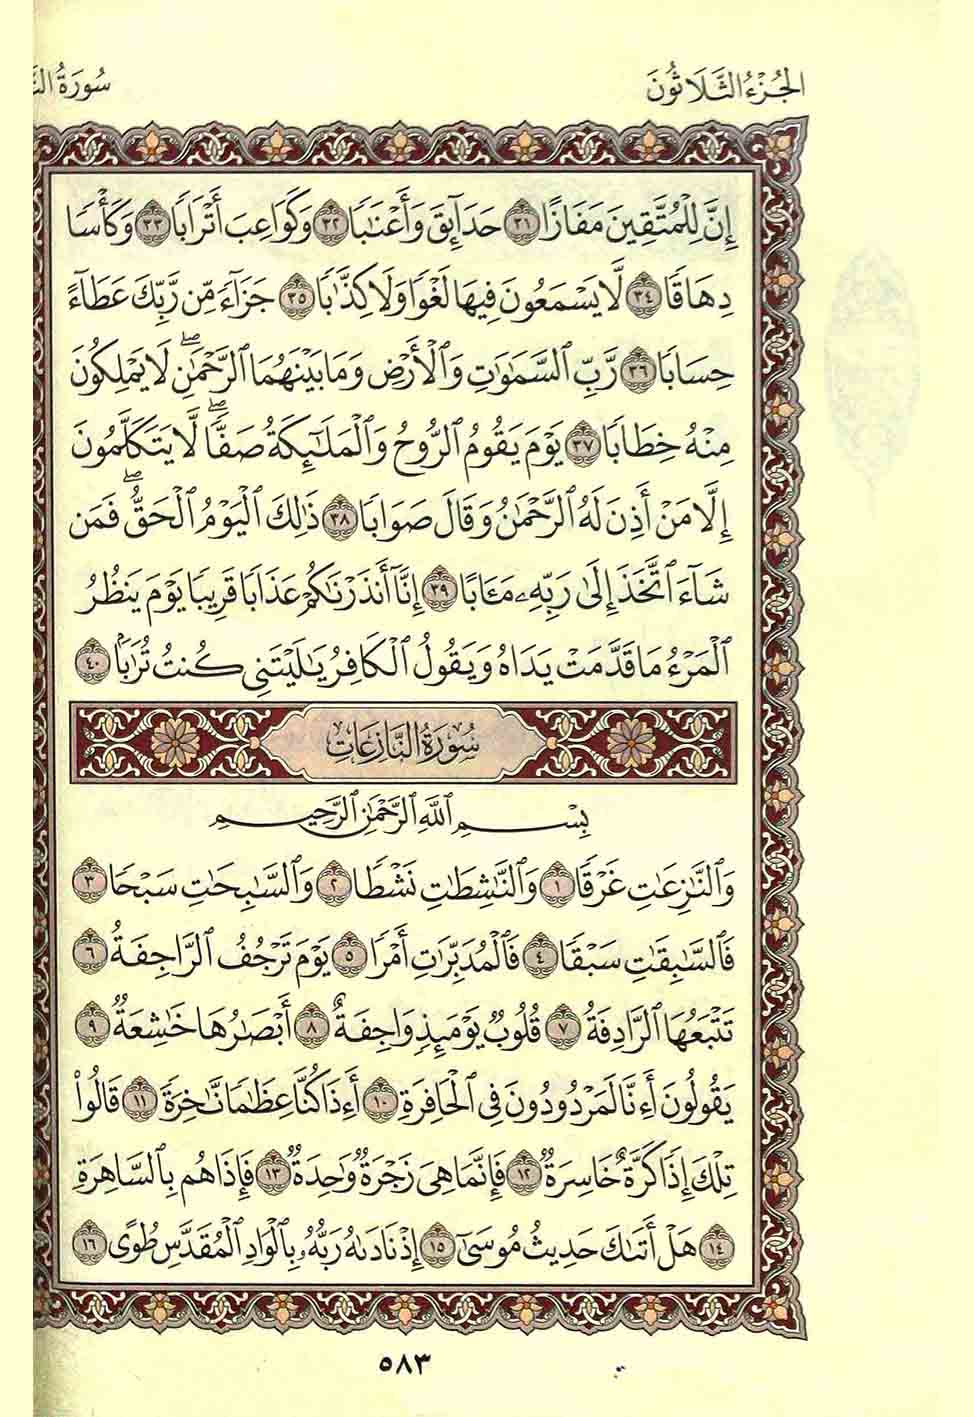 الجُزْءُ الثَّلَاثُونَ
سُورَةُ
إِنَّ لِلْمُتَّقِينَ مَفَازًا ٣١ حَدَآئِقَ وَأَعْنَٰبًا ٣٢ وَكَوَاعِبَ أَتْرَابًا ٣٣ وَكَأْسًا
دِهَاقًا ٣٤ لَّا يَسْمَعُونَ فِيهَا لَغْوًا وَلَا كِذَّٰبًا ٣٥ جَزَآءً مِّن رَّبِّكَ عَطَآءً
حِسَابًا ٣٦ رَّبِّ ٱلسَّمَٰوَٰتِ وَٱلْأَرْضِ وَمَا بَيْنَهُمَا ٱلرَّحْمَٰنِۖ لَا يَمْلِكُونَ
مِنْهُ خِطَابًا ٣٧ يَوْمَ يَقُومُ ٱلرُّوحُ وَٱلْمَلَٰٓئِكَةُ صَفًّاۖ لَّا يَتَكَلَّمُونَ
إِلَّا مَنْ أَذِنَ لَهُ ٱلرَّحْمَٰنُ وَقَالَ صَوَابًا ٣٨ ذَٰلِكَ ٱلْيَوْمُ ٱلْحَقُّۖ فَمَن
شَآءَ ٱتَّخَذَ إِلَىٰ رَبِّهِۦ مَـَٔابًا ٣٩ إِنَّآ أَنذَرْنَٰكُمْ عَذَابًا قَرِيبًا يَوْمَ يَنظُرُ
ٱلْمَرْءُ مَا قَدَّمَتْ يَدَاهُ وَيَقُولُ ٱلْكَافِرُ يَٰلَيْتَنِى كُنتُ تُرَٰبًۢا ٤٠
سُورَةُ النَّازِعَاتِ
بِسْمِ ٱللَّهِ ٱلرَّحْمَٰنِ ٱلرَّحِيمِ
وَٱلنَّٰزِعَٰتِ غَرْقًا ١ وَٱلنَّٰشِطَٰتِ نَشْطًا ٢ وَٱلسَّٰبِحَٰتِ سَبْحًا ٣
فَٱلسَّٰبِقَٰتِ سَبْقًا ٤ فَٱلْمُدَبِّرَٰتِ أَمْرًا ٥ يَوْمَ تَرْجُفُ ٱلرَّاجِفَةُ ٦
تَتْبَعُهَا ٱلرَّادِفَةُ ٧ قُلُوبٌ يَوْمَئِذٍ وَاجِفَةٌ ٨ أَبْصَٰرُهَا خَٰشِعَةٌ ٩
يَقُولُونَ أَءِنَّا لَمَرْدُودُونَ فِى ٱلْحَافِرَةِ ١٠ أَءِذَا كُنَّا عِظَٰمًا نَّخِرَةً ١١ قَالُوا۟
تِلْكَ إِذًا كَرَّةٌ خَاسِرَةٌ ١٢ فَإِنَّمَا هِىَ زَجْرَةٌ وَٰحِدَةٌ ١٣ فَإِذَا هُم بِٱلسَّاهِرَةِ
١٤ هَلْ أَتَىٰكَ حَدِيثُ مُوسَىٰٓ ١٥ إِذْ نَادَىٰهُ رَبُّهُۥ بِٱلْوَادِ ٱلْمُقَدَّسِ طُوًى ١٦
٥٨٣